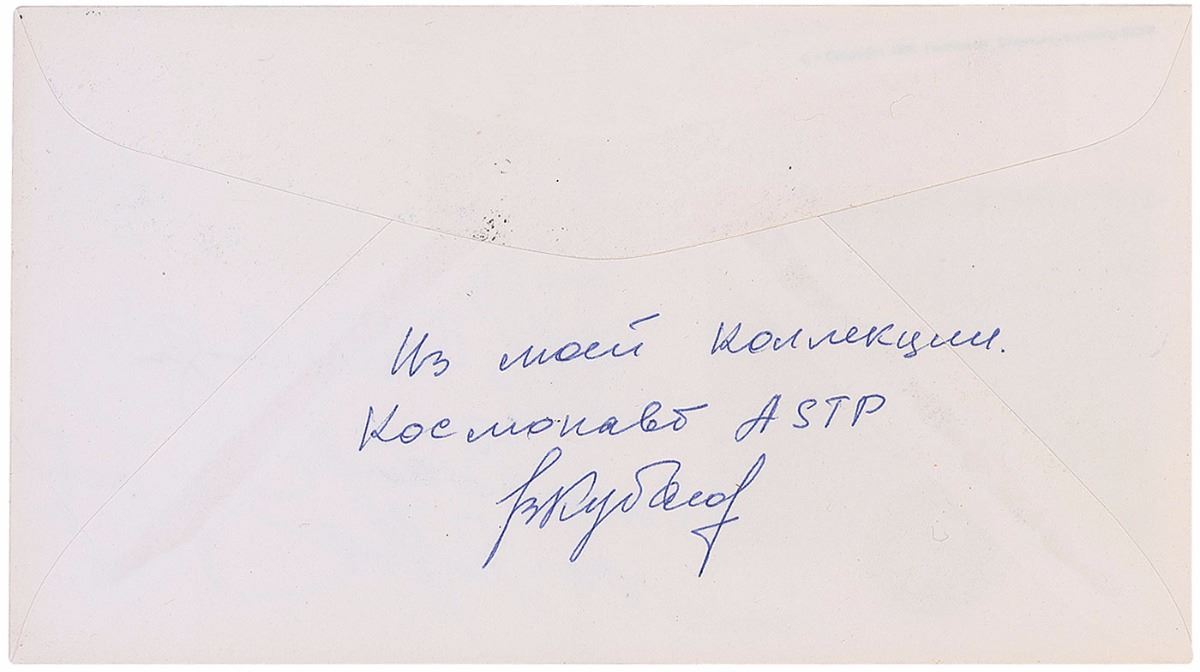 Из моей коллекции.
Космонавт ASTP
ВКубасов